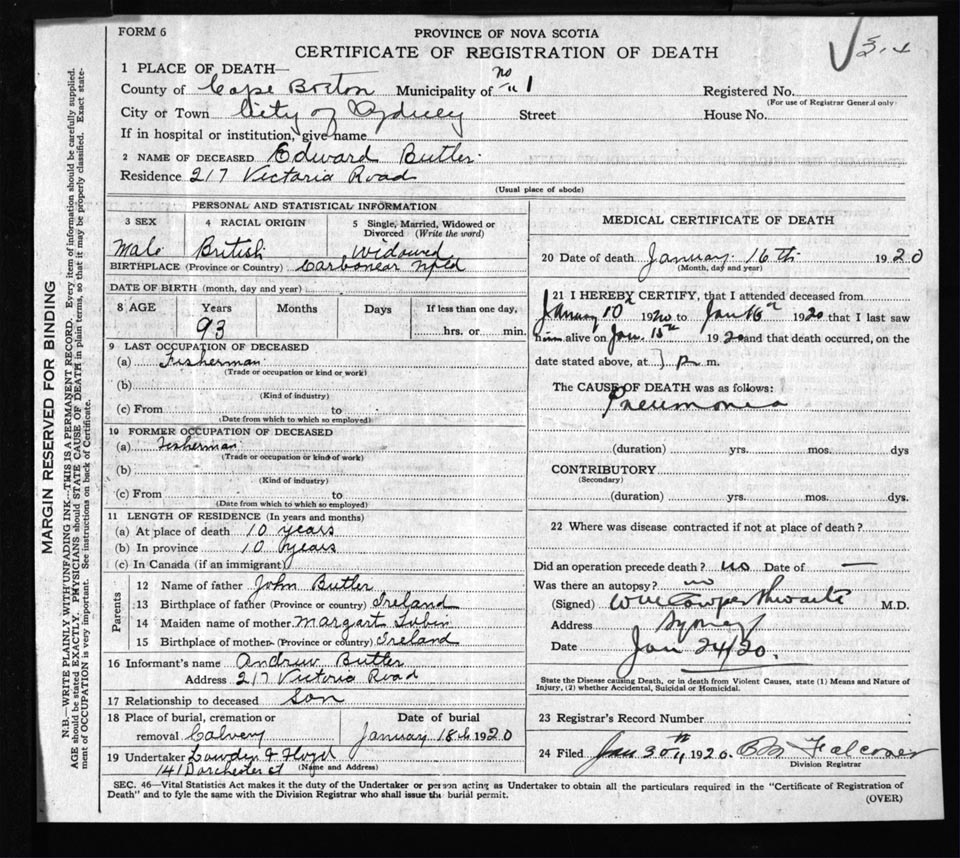 FORM 6
PROVINCE OF NOVA SCOTIA
CERTIFICATE OF REGISTRATION OF DEATH
1 PLACE OF DEATH—
County of Cape Breton Municipality of no 11 1 Registered No.
(For use of Registrar General only)
City or Town City of Sydney Street House No.
If in hospital or institution, give name
2 NAME OF DECEASED Edward Butler
Residence 217 Victoria Road
(Usual place of abode)
PERSONAL AND STATISTICAL INFORMATION
3 SEX 4 RACIAL ORIGIN 5 Single, Married, Widowed or Divorced (Write the word)
Male British Widowed
BIRTHPLACE (Province or Country) Carbonear Nfld
DATE OF BIRTH (month, day and year)
8 AGE Years Months Days If less than one day,
93 hrs. or min.
9 LAST OCCUPATION OF DECEASED
(a) Fisherman
(Trade or occupation or kind or work)
(b)
(Kind of industry)
(c) From to
(Date from which to which so employed)
10 FORMER OCCUPATION OF DECEASED
(a) Fisherman
(Trade or occupation or kind of work)
(b)
(Kind of industry)
(c) From to
(Date from which to which so employed)
11 LENGTH OF RESIDENCE (In years and months)
(a) At place of death 10 years
(b) In province 10 years
(c) In Canada (if an immigrant)
Parents
12 Name of father John Butler
13 Birthplace of father (Province or country) Ireland
14 Maiden name of mother Margart Tobin
15 Birthplace of mother (Province or country) Ireland
16 Informant's name Andrew Butler
Address 217 Victoria Road
17 Relationship to deceased Son
18 Place of burial, cremation or Date of burial
removal Calvery January 18th 1920
19 Undertaker Lowden & Floyd
(Name and Address)
141 Dorchester st
MEDICAL CERTIFICATE OF DEATH
20 Date of death January 16th 1920
(Month, day and year)
21 I HEREBY CERTIFY, that I attended deceased from
January 10th 1920 to Jan 16th 1920 that I last saw
him alive on Jan. 15th 1920 and that death occurred, on the
date stated above, at 7 P m.
The CAUSE OF DEATH was as follows:
Pneumonia
(duration) yrs. mos. dys
CONTRIBUTORY
(Secondary)
(duration) yrs. mos. dys.
22 Where was disease contracted if not at place of death?
Did an operation precede death? no Date of —
Was there an autopsy? no
(Signed) Wm Cowperthwaite M.D.
Address Sydney
Date Jan 24/20.
State the Disease causing Death, or in death from Violent Causes, state (1) Means and Nature of
Injury, (2) whether Accidental, Suicidal or Homicidal.
23 Registrar's Record Number
24 Filed Jan 30th, 1920. Falconer
Division Registrar
SEC. 46—Vital Statistics Act makes it the duty of the Undertaker or person acting as Undertaker to obtain all the particulars required in the "Certificate of Registration of
Death" and to fyle the same with the Division Registrar who shall issue the burial permit.
(OVER)
MARGIN RESERVED FOR BINDING
N.B.—WRITE PLAINLY WITH UNFADING INK—THIS IS A PERMANENT RECORD. Every item of information should be carefully supplied.
AGE should be stated EXACTLY. PHYSICIANS should STATE CAUSE OF DEATH in plain terms, so that it may be properly classified. Exact state-
ment of OCCUPATION is very important. See instructions on back of Certificate.